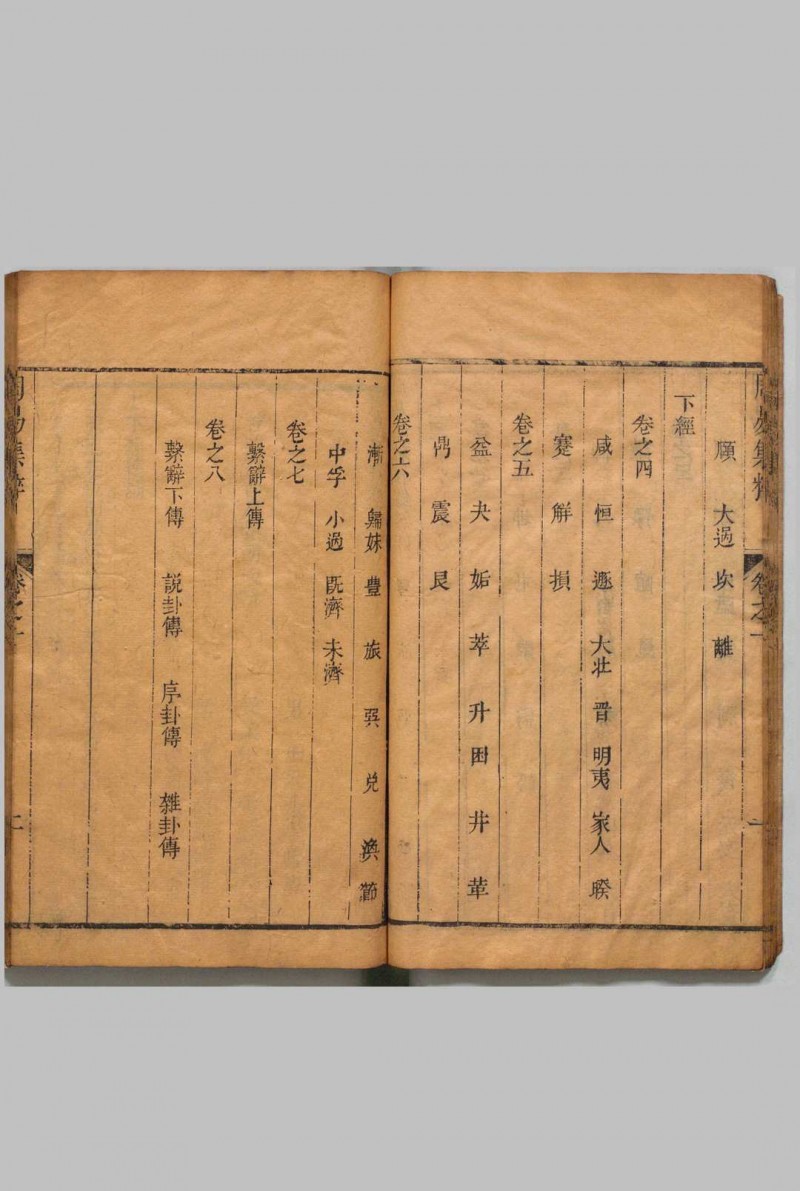 頤 大過 坎 離
下經
卷之四
咸 恒 遯 大壯 晋 明夷 家人 睽
蹇 解 損
卷之五
益 夬 姤 萃 升 困 井 革
鼎 震 艮
卷之六
漸 歸妹 豊 旅 巽 兌 渙 節
中孚 小過 旣濟 未濟
卷之七
繫辭上傳
卷之八
繫辭下傳 説卦傳 序卦傳 雜卦傳
二